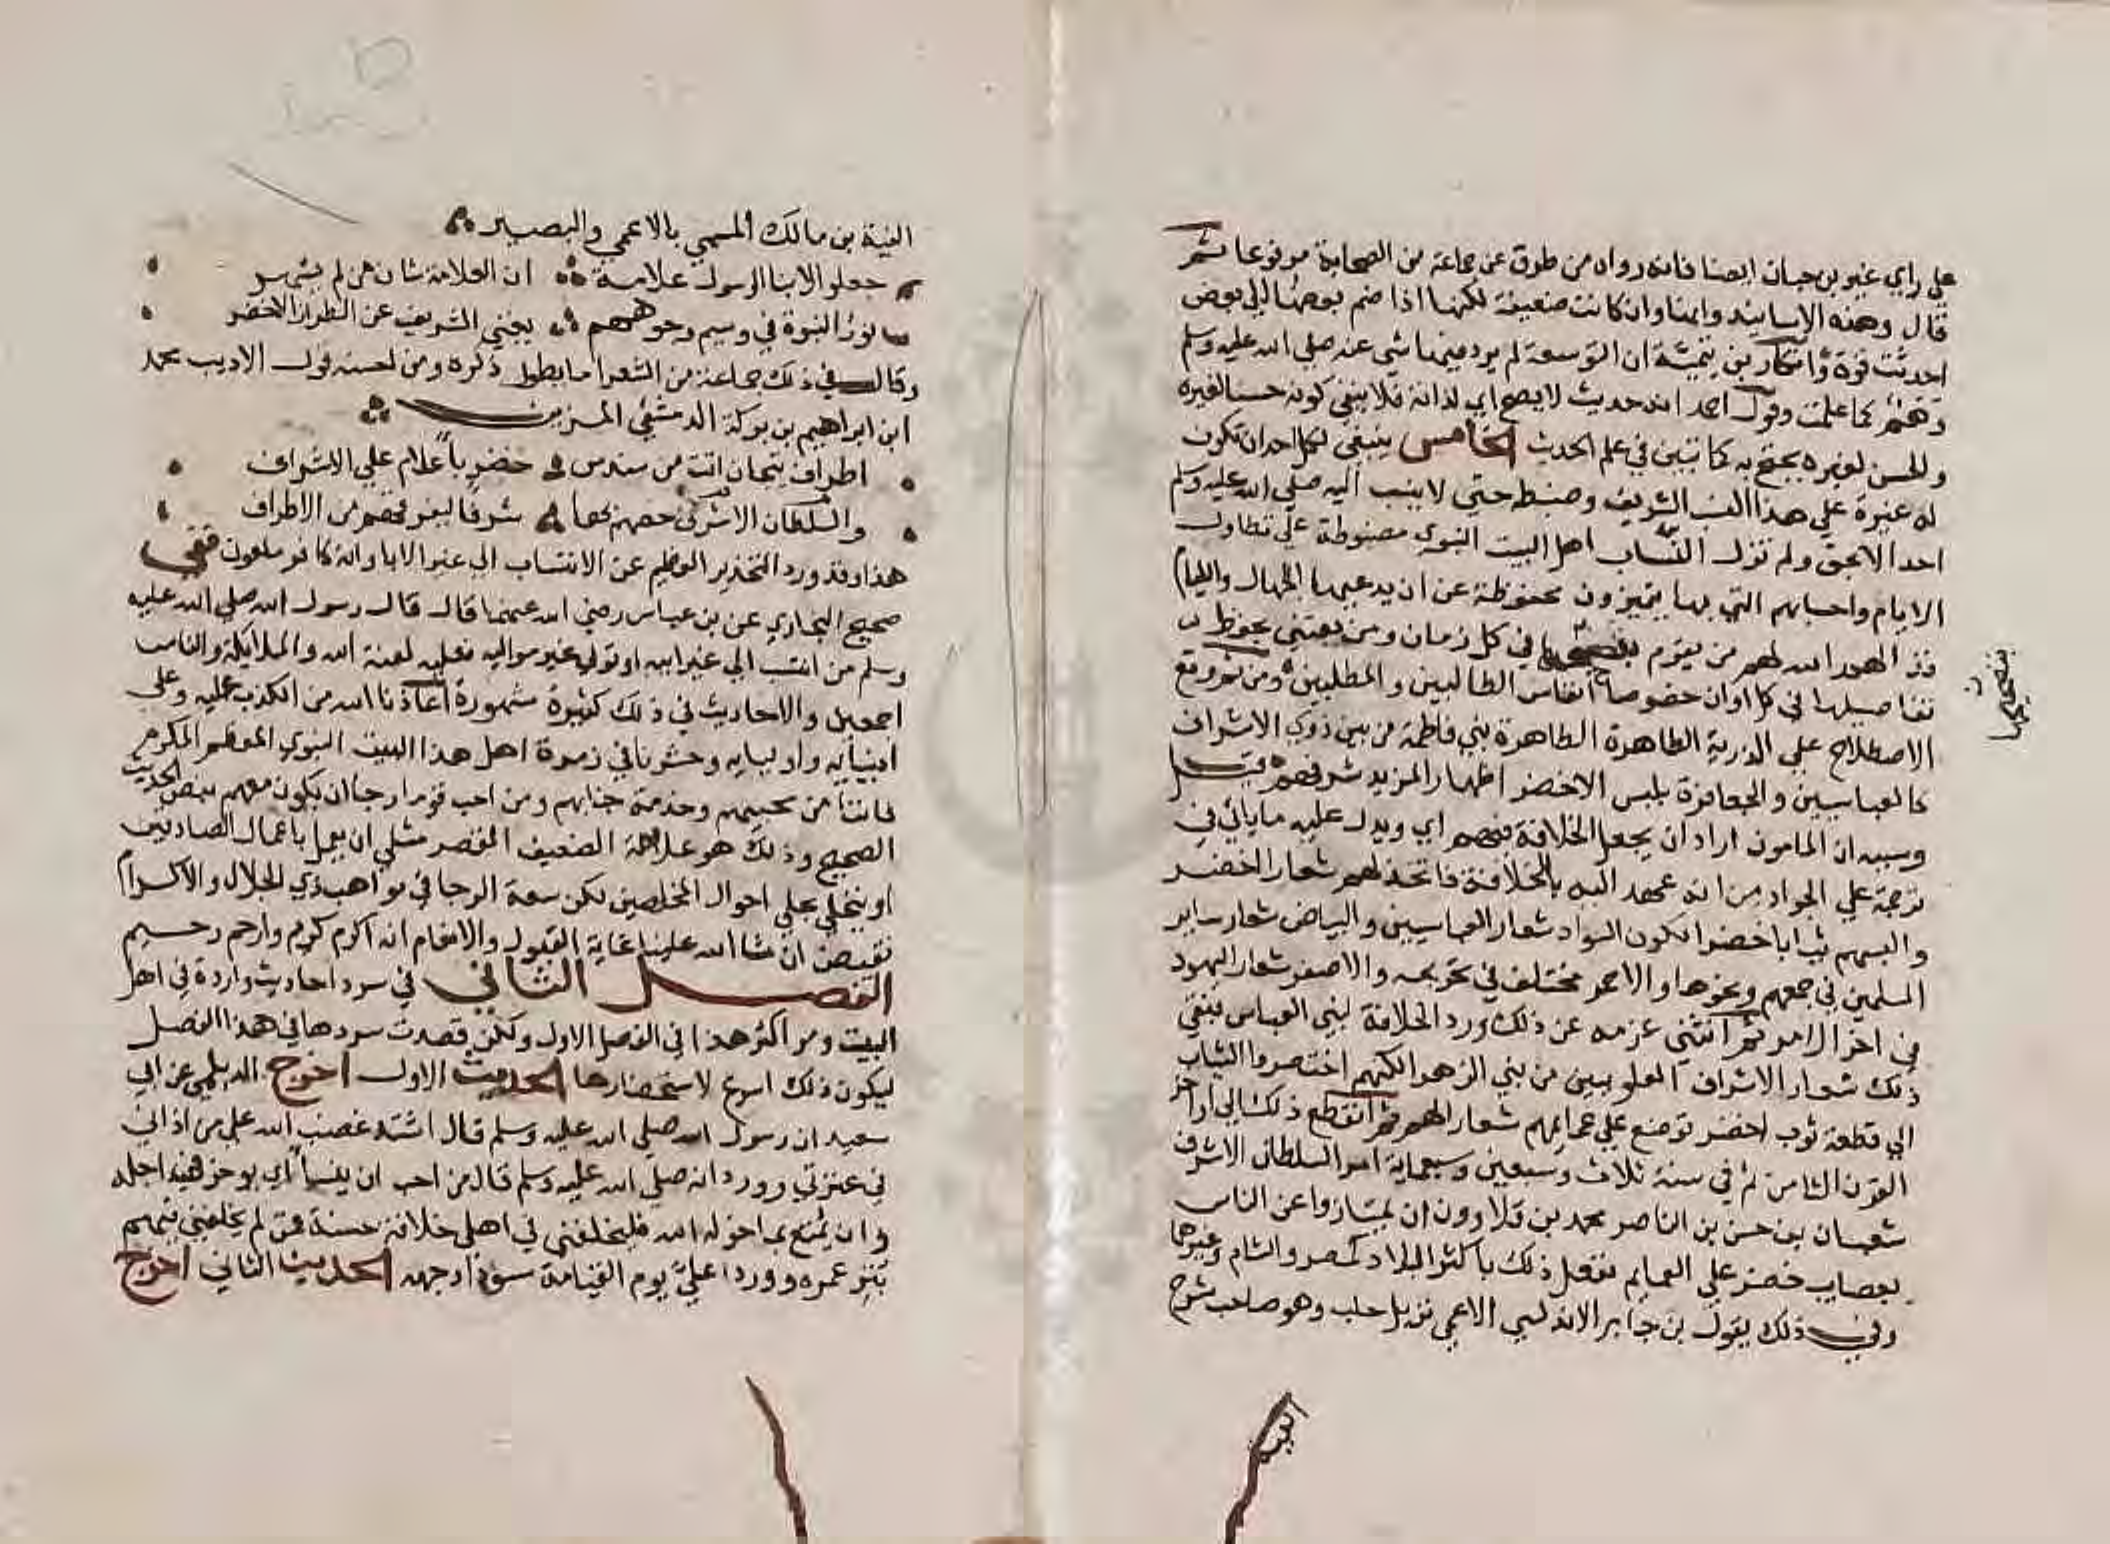 علي راي غير بن حبان ايضا فانه رواه من طرق عن جماعة من الصحابة مرفوعا ثم
قال وهذه الاسانيد وان كانت ضعيفة لكنها اذا ضم بعضها الي بعض
احدثت قوة وانكار بن تيمية ان التوسعة لم يرد فيها شي عنه صلي الله عليه وسلم
وهم كما علمت وقول احمد انه حديث لا يصح اي لذاته فلا ينفي كونه حسنا لغيره
والحسن لغيره يحتج به كما تبين في علم الحديث الخامس ينبغي لكل احد ان تكون
له غيرة علي هذا النسب الشريف وضبطه حتي لا ينسب اليه صلي الله عليه وسلم
احد الا بحق ولم تزل انساب اهل البيت النبوي مضبوطة علي تطاول
الايام واحسابهم التي بها يتميزون محفوظة عن ان يدعيها الجهال واللئام
قد الهم الله لهم من يقوم بتصحيحها في كل زمان ومن يعتني بحفظ
تفاصيلها في كل اوان خصوصا انساب الطالبيين والمطلبيين ومن ثم وقع
الاصطلاح علي الذرية الطاهرة الطاهرة بني فاطمة من بين ذوي الاشراف
كالعباسيين والجعافرة بلبس الاخضر اظهارا لمزيد شرفهم قيل
وسببه ان المامون اراد ان يجعل الخلافة فيهم اي ويدل عليه ما ياتي في
ترجمة علي الجواد من انه عهد اليه بالخلافة فاتخذ لهم شعارا اخضر
والبسهم ثيابا خضرا لكون السواد شعار العباسيين والبياض شعار ساير
المسلمين في جمعهم ونحوها والاحمر مختلف في تحريمه والاصفر شعار اليهود
في اخر الامر ثم انثني عزمه عن ذلك ورد الخلافة لبني العباس فبقي
ذلك شعار الاشراف العلويين من بني الزهرا لكنهم اختصروا الثياب
الي قطعة ثوب اخضر توضع علي عمايمهم شعارا لهم ثم انقطع ذلك الي اواخر
القرن الثامن ثم في سنة ثلاث وسبعين وسبعماية امر السلطان الاشرف
شعبان بن حسن بن الناصر محمد بن قلاوون ان يمتازوا عن الناس
بعصايب خضر علي العمايم ففعل ذلك باكثر البلاد كمصر والشام وغيرها
وفي ذلك يقول بن جابر الاندلسي الاعمي نزيل حلب وهو صاحب شرح
بتصحيحها
الفية
الفية بن مالك المسمي بالاعمي والبصير
جعلوا لابنا الرسول علامة ان العلامة شان من لم يشهر
نور النبوة في وسيم وجوههم يغني الشريف عن الطراز الاخضر
وقال في ذلك جماعة من الشعرا ما يطول ذكره ومن احسنه قول الاديب محمد
ابن ابراهيم بن بركة الدمشقي المزين
اطراف تيجان اتت من سندس خضر باعلام علي الاشراف
والسلطان الاشرف خصهم بها شرفا ليعرفهم من الاطراف
هذا وقد ورد التحذير العظيم عن الانتساب الي غير الابا وانه كافر ملعون ففي
صحيح البخاري عن بن عباس رضي الله عنهما قال قال رسول الله صلي الله عليه
وسلم من انتسب الي غير ابيه او تولي غير مواليه فعليه لعنة الله والملايكة والناس
اجمعين والاحاديث في ذلك كثيرة مشهورة اعاذنا الله من الكذب عليه وعلي
انبيايه واوليايه وحشرنا في زمرة اهل هذا البيت النبوي المعظم المكرم
فاننا من محبيهم وخدمة جنابهم ومن احب قوما رجا ان يكون معهم بنص الحديث
الصحيح وذلك هو علاقة الضعيف المقصر مثلي ان يعمل باعمال الصادقين
او يتحلي بحلي احوال المخلصين لكن سعة الرجا في مواهب ذي الجلال والاكرام
تفيض ان شا الله علينا غاية القبول والانعام انه اكرم كريم وارحم رحيم
الفصل الثاني في سرد احاديث واردة في اهل
البيت ومر اكثر هذا في الفصل الاول ولكن قصدت سردها في هذا الفصل
ليكون ذلك اسرع لاستحضارها الحديث الاول اخرج الديلمي عن ابي
سعيد ان رسول الله صلي الله عليه وسلم قال اشتد غضب الله علي من اذاني
في عترتي وورد انه صلي الله عليه وسلم قال من احب ان ينسا اي يوخر في اجله
وان يمتع بما خوله الله فليخلفني في اهلي خلافة حسنة فمن لم يخلفني فيهم
بتر عمره وورد علي يوم القيامة مسودا وجهه الحديث الثاني اخرج